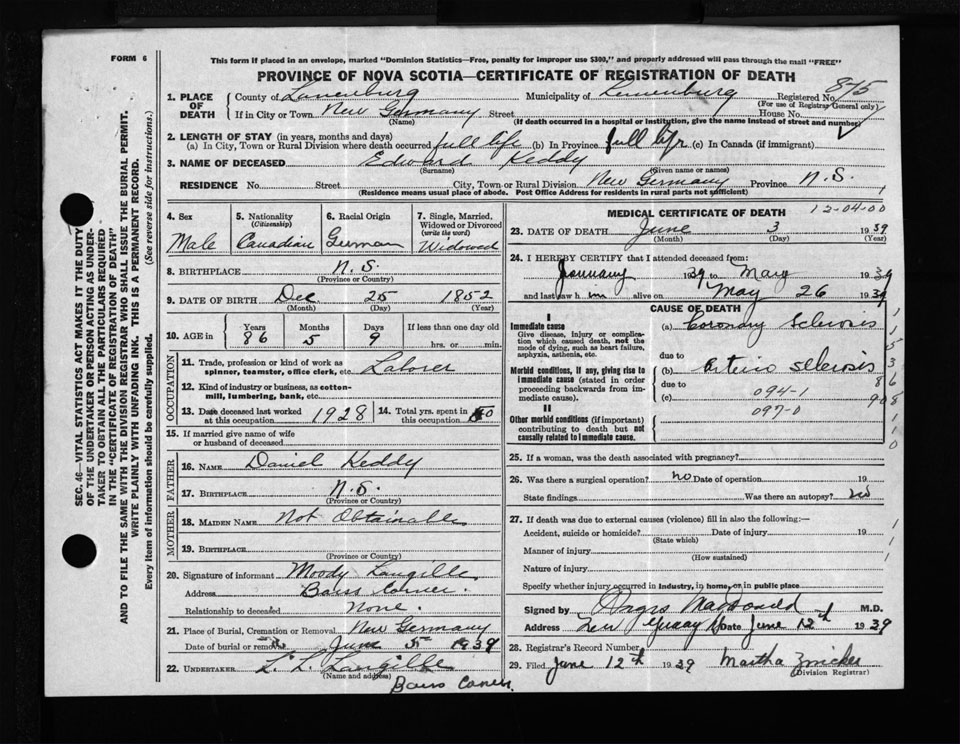 FORM 6
This form if placed in an envelope, marked "Dominion Statistics—Free, penalty for improper use $300," and properly addressed will pass through the mail "FREE"
PROVINCE OF NOVA SCOTIA—CERTIFICATE OF REGISTRATION OF DEATH
SEC. 46—VITAL STATISTICS ACT MAKES IT THE DUTY
OF THE UNDERTAKER OR PERSON ACTING AS UNDER-
TAKER TO OBTAIN ALL THE PARTICULARS REQUIRED
IN THE "CERTIFICATE OF REGISTRATION OF DEATH"
AND TO FILE THE SAME WITH THE DIVISION REGISTRAR WHO SHALL ISSUE THE BURIAL PERMIT.
WRITE PLAINLY WITH UNFADING INK. THIS IS A PERMANENT RECORD.
Every item of information should be carefully supplied. (See reverse side for instructions.)
1. PLACE OF DEATH County of Lunenburg Municipality of Lunenburg Registered No. 845
(For use of Registrar General only)
If in City or Town New Germany Street House No.
(Name) (If death occurred in a hospital or institution, give the name instead of street and number)
2. LENGTH OF STAY (in years, months and days)
(a) In City, Town or Rural Division where death occurred full life (b) In Province full life (c) In Canada (if immigrant)
3. NAME OF DECEASED Edward Keddy
(Surname) (Given name or names)
RESIDENCE No. Street City, Town or Rural Division New Germany Province N.S.
(Residence means usual place of abode. Post Office Address for residents in rural parts not sufficient)
4. Sex 5. Nationality (Citizenship) 6. Racial Origin 7. Single, Married, Widowed or Divorced (write the word)
Male Canadian German Widowed
8. BIRTHPLACE N.S.
(Province or Country)
9. DATE OF BIRTH Dec 25 1852
(Month) (Day) (Year)
10. AGE in Years Months Days If less than one day old
86 5 9 hrs. or min.
OCCUPATION
11. Trade, profession or kind of work as spinner, teamster, office clerk, etc. Laborer
12. Kind of industry or business, as cotton-mill, lumbering, bank, etc.
13. Date deceased last worked at this occupation 1928 14. Total yrs. spent in this occupation
15. If married give name of wife or husband of deceased
FATHER
16. NAME Daniel Keddy
17. BIRTHPLACE N.S.
(Province or Country)
MOTHER
18. MAIDEN NAME Not Obtainable
19. BIRTHPLACE
(Province or Country)
20. Signature of informant Moody Langille
Address Barss Corner
Relationship to deceased None.
21. Place of Burial, Cremation or Removal New Germany
Date of burial or removal June 5 1939
22. UNDERTAKER L. L. Langille
(Name and address)
Barss Corner.
MEDICAL CERTIFICATE OF DEATH 12-04-00
23. DATE OF DEATH June 3 1939
(Month) (Day) (Year)
24. I HEREBY CERTIFY that I attended deceased from:
January 1939 to May 1939
and last saw him alive on May 26 1939
CAUSE OF DEATH
I
Immediate cause
Give disease, injury or complication which caused death, not the mode of dying, such as heart failure, asphyxia, asthenia, etc.
(a) Coronary Sclerosis
due to
Morbid conditions, if any, giving rise to immediate cause (stated in order proceeding backwards from immediate cause).
(b) Arterio sclerosis
due to
(c) 094-1
097-0
II
Other morbid conditions (if important) contributing to death but not causally related to immediate cause.
25. If a woman, was the death associated with pregnancy?
26. Was there a surgical operation? no Date of operation 19
State findings Was there an autopsy? no
27. If death was due to external causes (violence) fill in also the following:—
Accident, suicide or homicide? Date of injury 19
(State which)
Manner of injury
(How sustained)
Nature of injury
Specify whether injury occurred in industry, in home, or in public place
Signed by Angus MacDonald M.D.
Address New Germany Date June 12th 1939
28. Registrar's Record Number
29. Filed June 12th 1939 Martha Zwicker
(Division Registrar)